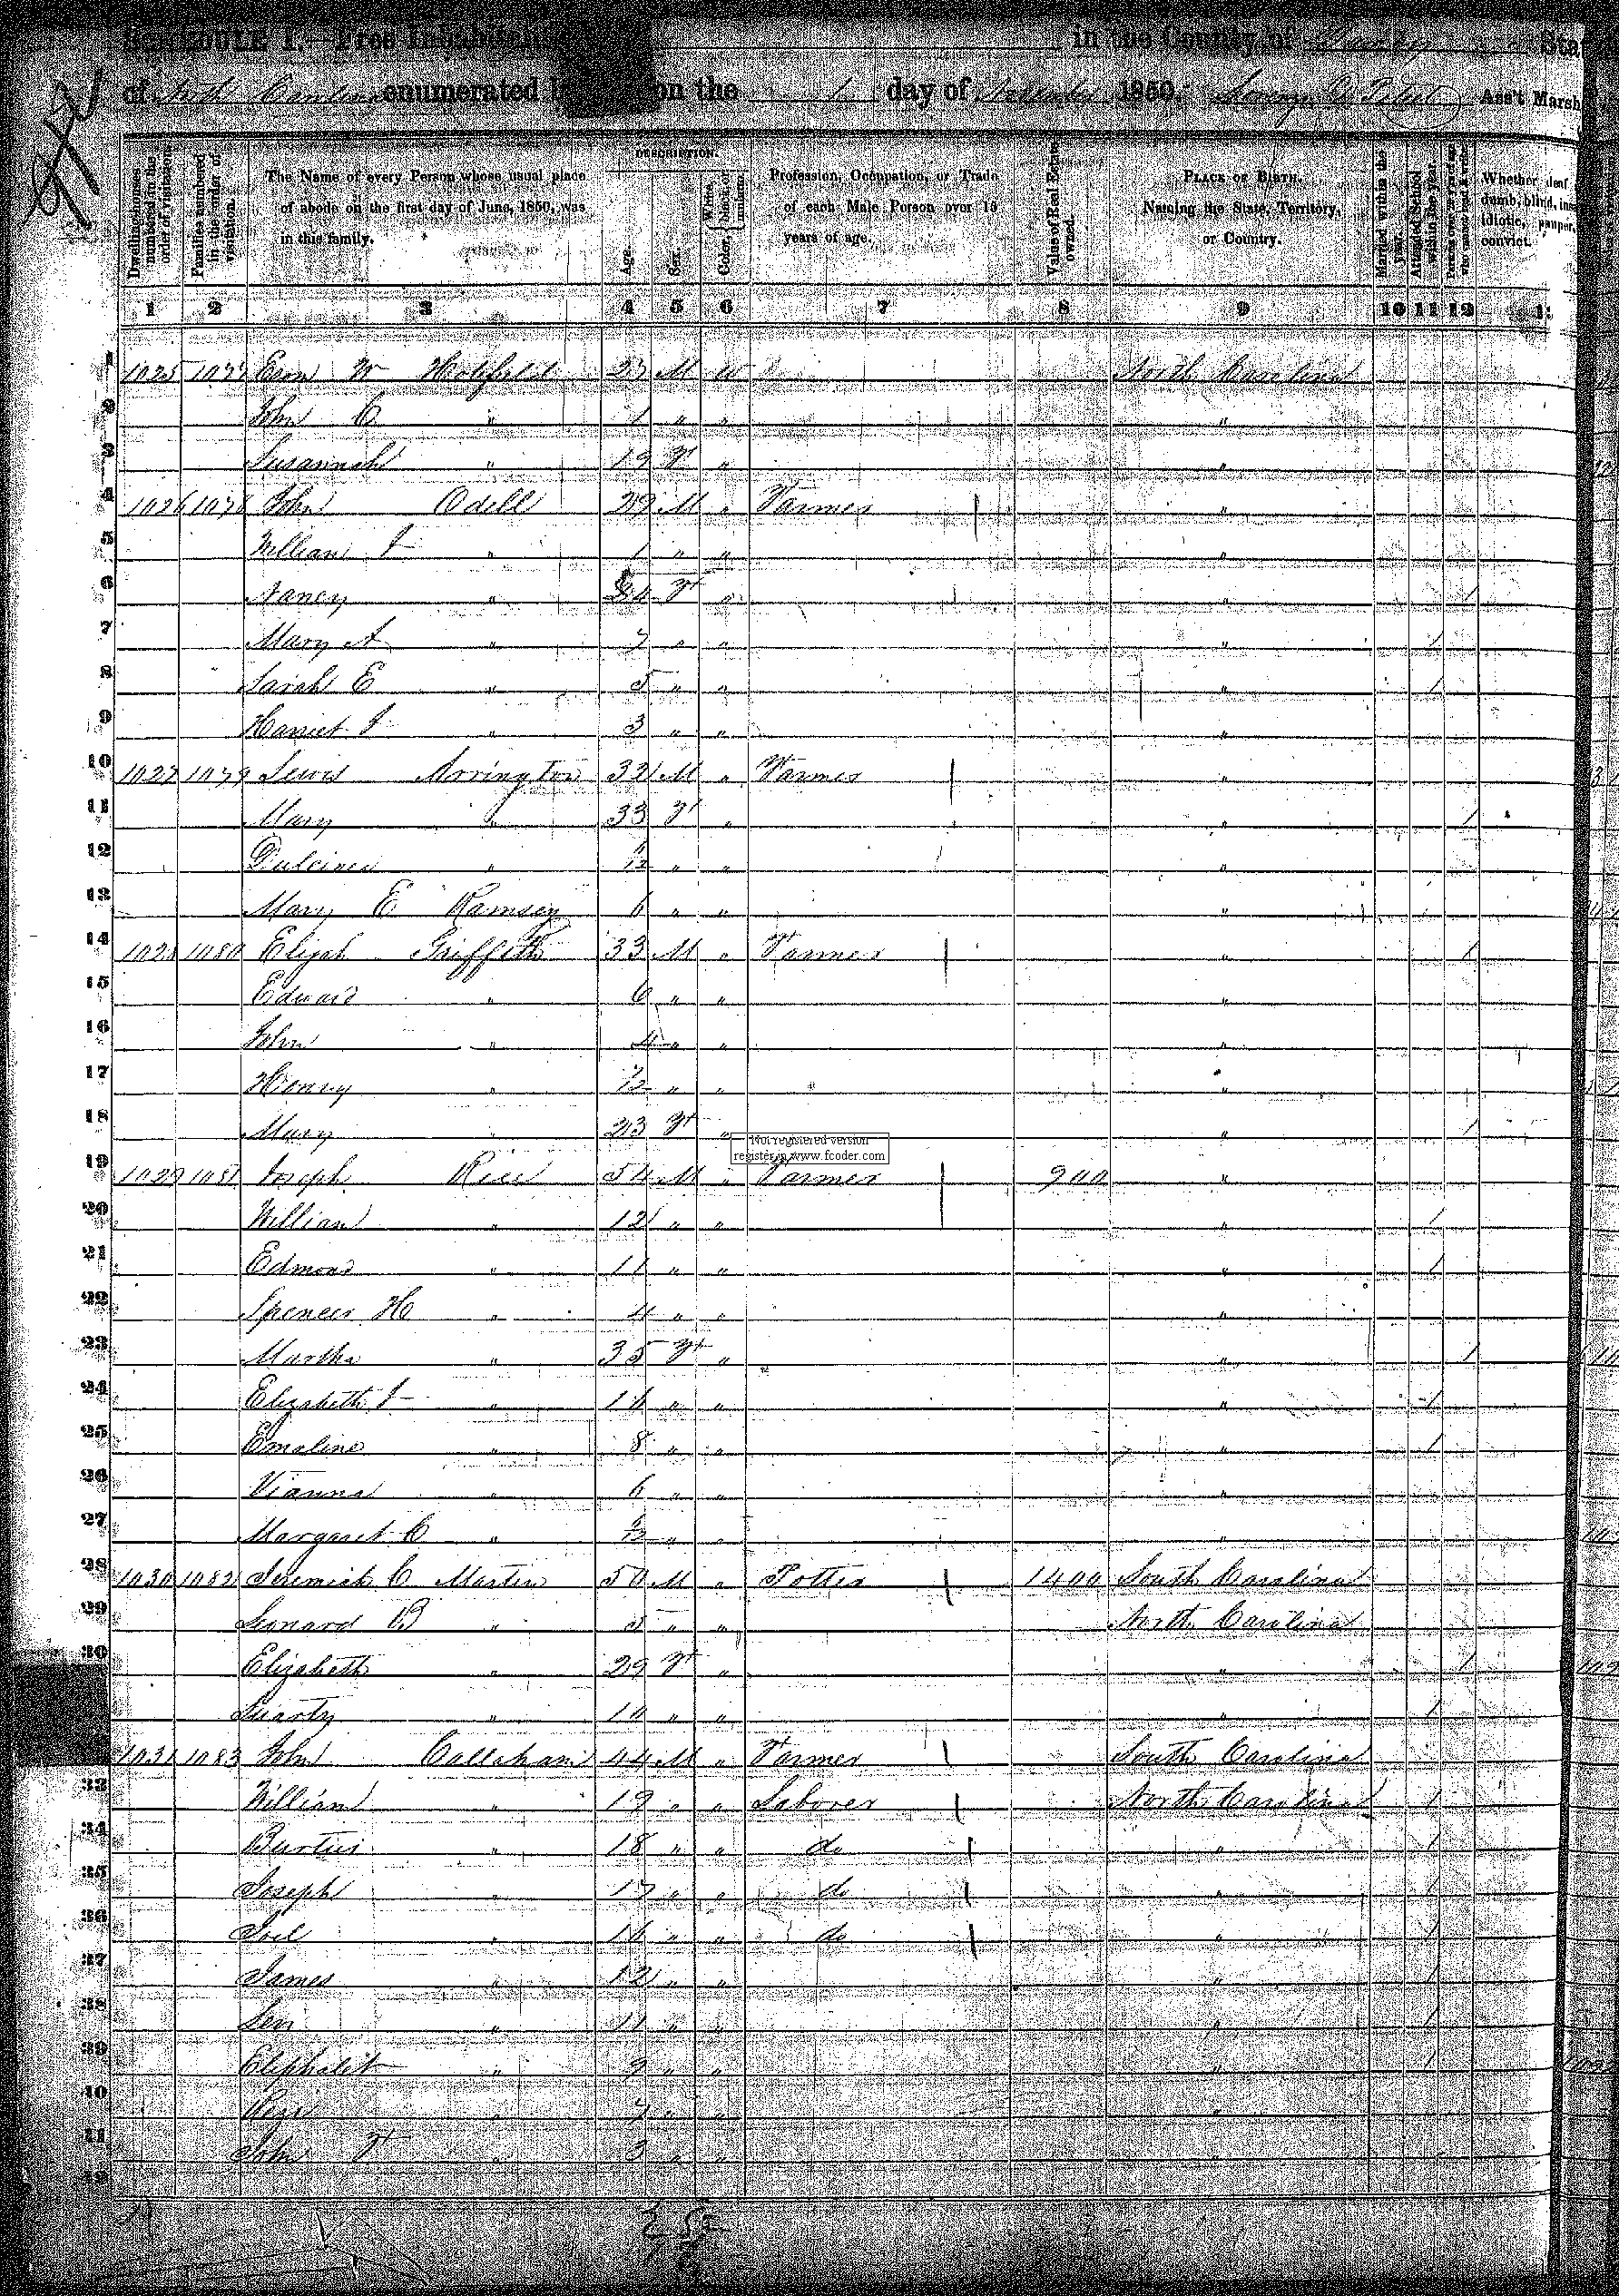 SCHEDULE I.—Free Inhabitants in the County of State
of North Carolina enumerated by on the 1 day of November 1850. Ass't Marsh
Dwelling-houses numbered in the order of visitation.
Families numbered in the order of visitation.
The Name of every Person whose usual place of abode on the first day of June, 1850, was in this family.
DESCRIPTION.
Age.
Sex.
Color, { White, black, or mulatto.
Profession, Occupation, or Trade of each Male Person over 15 years of age.
Value of Real Estate owned.
PLACE OF BIRTH. Naming the State, Territory, or Country.
Married within the year.
Attended School within the year.
Persons over 20 y'rs of age who cannot read & write.
Whether deaf dumb, blind, insane idiotic, pauper, convict.
1 2 3 4 5 6 7 8 9 10 11 12
1 1025 1077 W 23 M W North Carolina
2 John C " 1 " " "
3 Susannah " 19 F " "
4 1026 1078 John Odell 29 M " Farmer "
5 William J " 1 " " "
6 Nancy " F " " 1
7 Mary A " 7 " " " 1
8 Sarah E " 5 " " " 1
9 Harriet J " 3 " " "
10 1027 1079 Lewis Arrington 32 M " Farmer "
11 Mary " 33 F " " 1
12 Dulcinea " " " "
13 Mary E Ramsey 6 " " "
14 1028 1080 Elijah Griffith 33 M " Farmer " 1
15 Edward " 6 " " "
16 John " 4 " " "
17 Henry " 7/12 " " "
18 Mary " 23 F " " 1
Not registered version
register in www.fcoder.com
19 1029 1081 Joseph Rice 54 M " Farmer 900 "
20 William " 12 " " " 1
21 Edmond " 11 " " " 1
22 Spencer H " 4 " " "
23 Martha " 35 F " " 1
24 Elizabeth J " 16 " " " 1
25 Emaline " 8 " " " 1
26 Vianna " 6 " " "
27 Margaret C " " " "
28 1030 1082 Jeremiah C Martin 50 M " Potter 1400 South Carolina
29 Leonard B " 5 " " North Carolina
30 Elizabeth " 29 F " " 1
" 10 " " " 1
1031 1083 John Callahan 44 M " Farmer South Carolina
33 William " 19 " " Laborer North Carolina 1
34 Burtus " 18 " " do " 1
35 Joseph " 17 " " do " 1
36 Joel " 16 " " do " 1
37 James " 12 " " " 1
38 Levi " 11 " " " 1
39 Eliphalet " 9 " " " 1
40 " 7 " " "
41 John F " 3 " " "
42